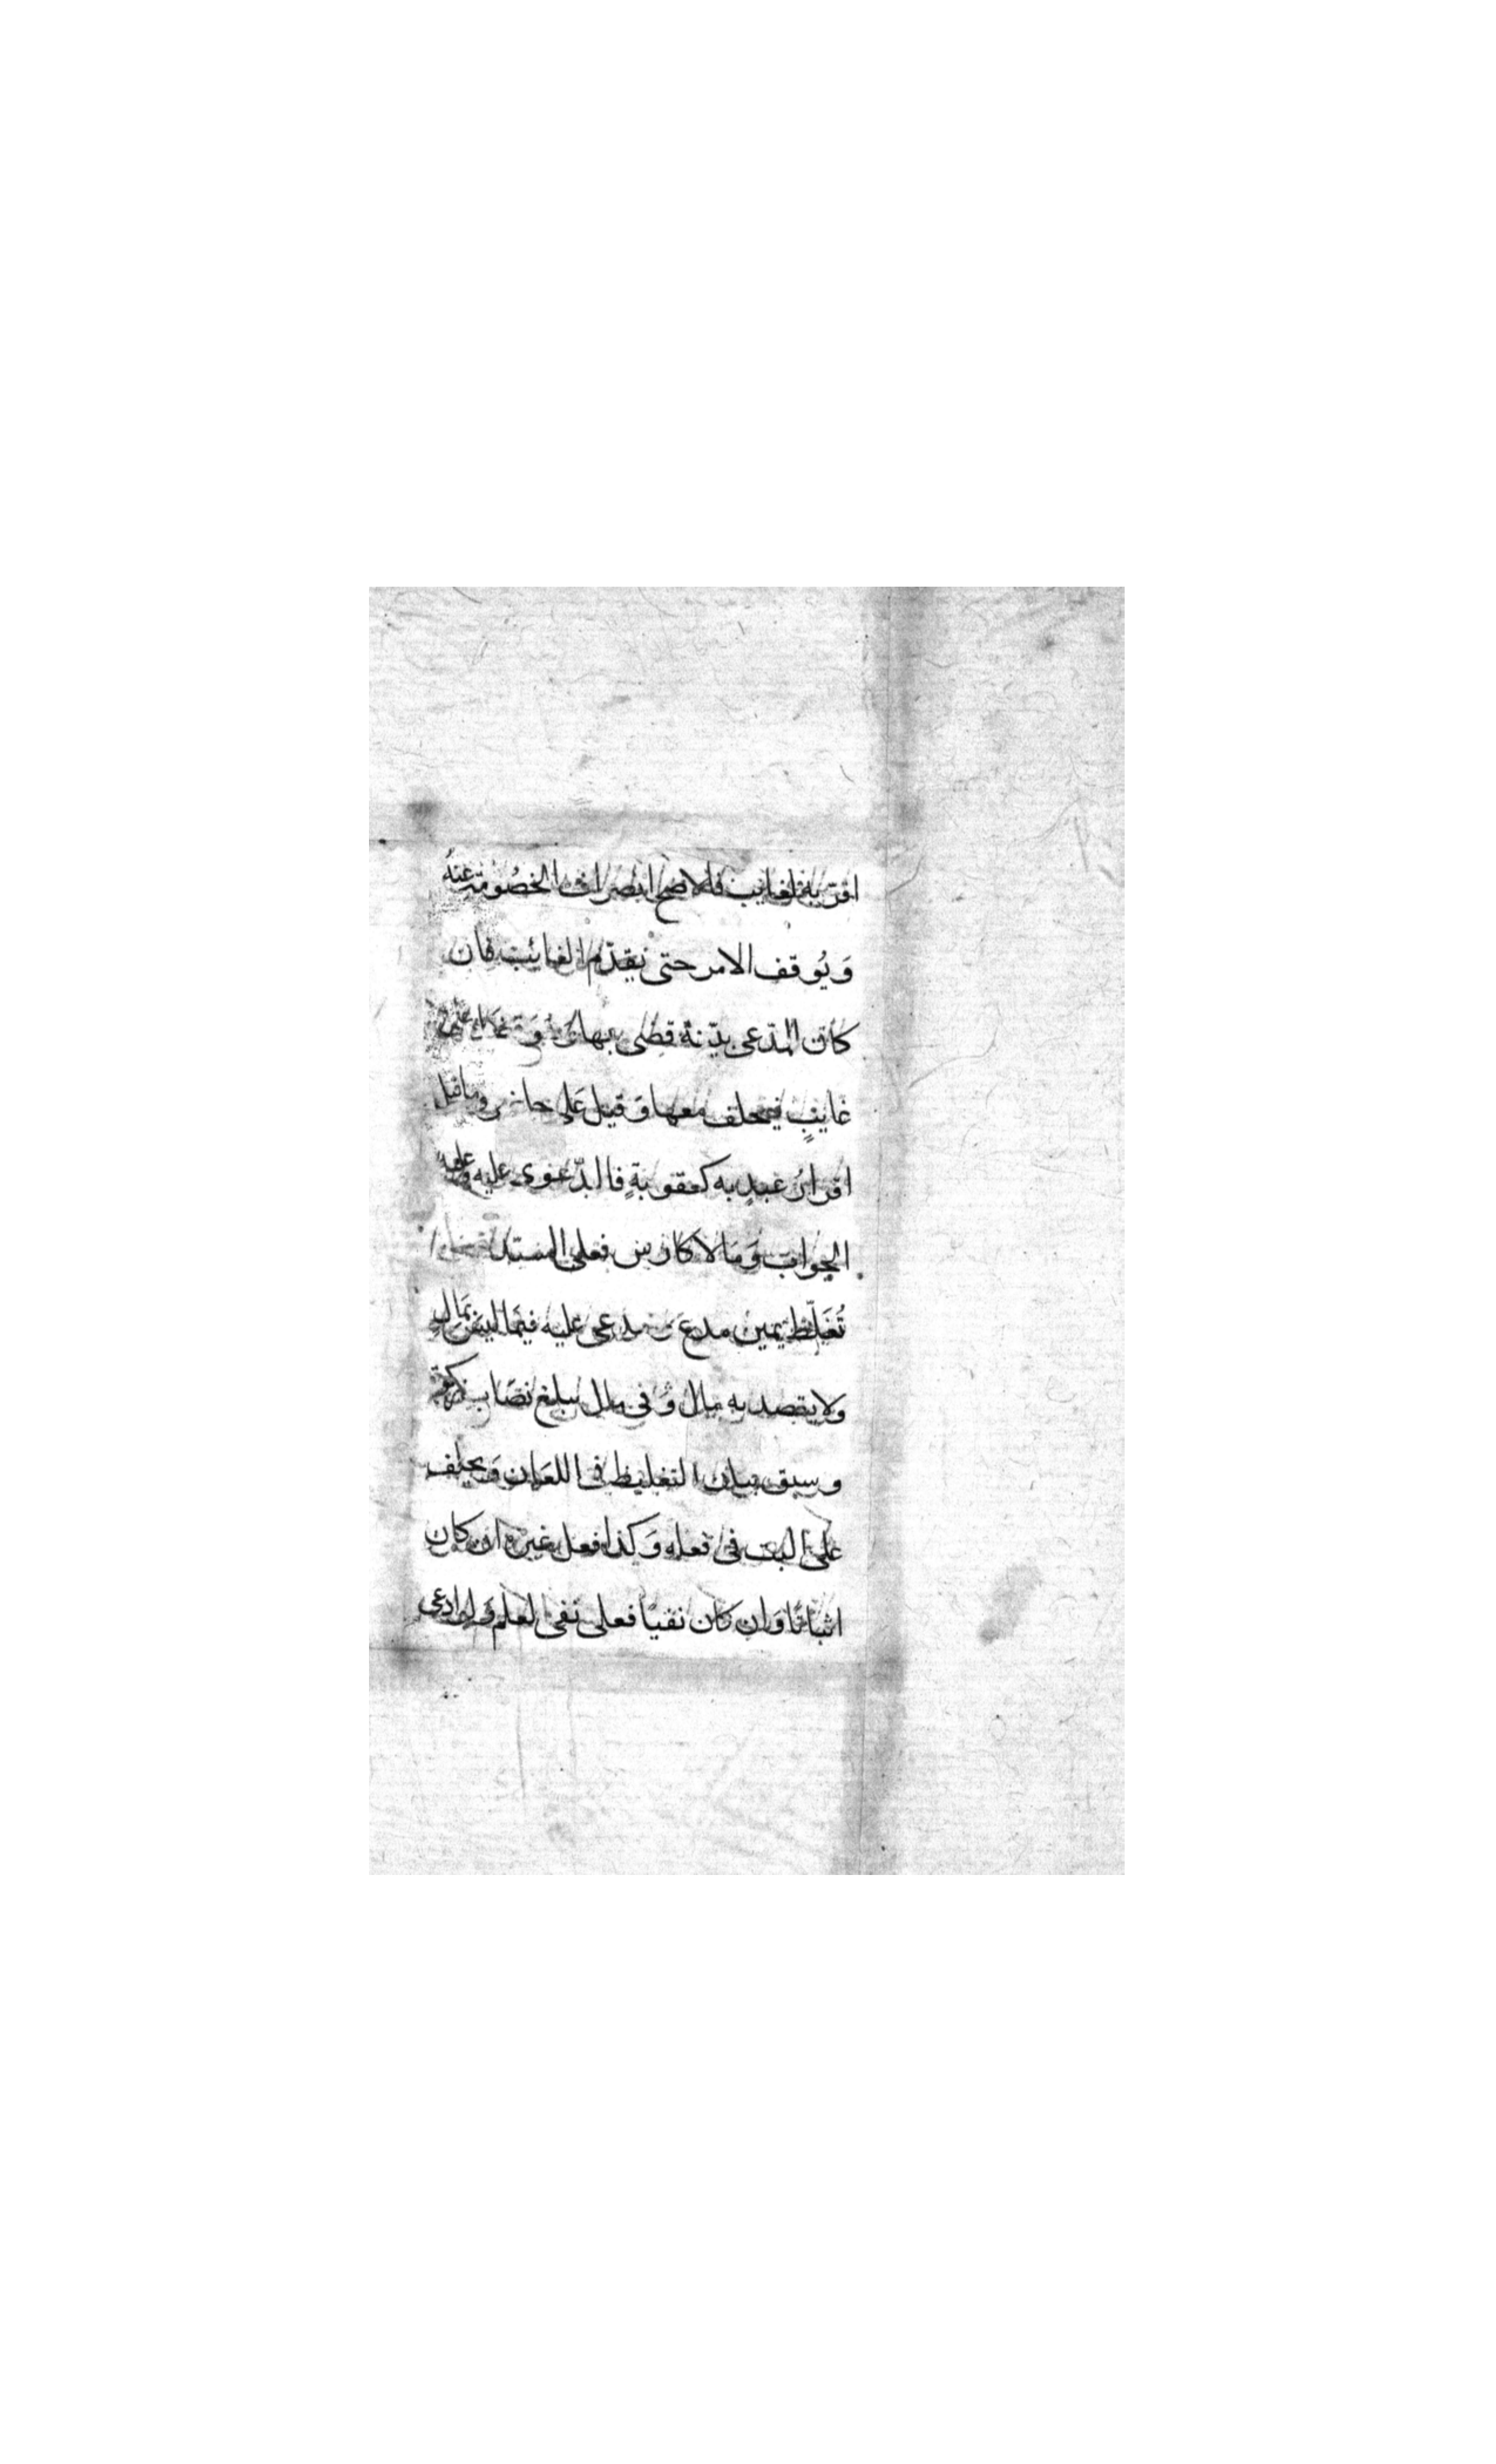 اقر به لغايب فالاصح انصراف الخصومة عنه
وَيُوقف الامر حتى يقدّم الغائب فان
كان المدّعى بيّنة قضى بها وَ على
غايبٍ فيحلف معها وَ قيل عَلى حاضر وما قبل
اقرارُ عبدٍ به كعقوبةٍ فالدّعوى عليه وعليه
الجواب وَمَا لا كارش فعلى السيّد
تُغَلّظ يمين مدعٍ و مدعى عليه فيمَا ليسَ بمَال
ولا يقصد به مال وَ فى مال يبلغ نصَاب زكوة
وسبق بيان التغليظ فى اللعَان وَيحلف
على البت فى فعله وَكذا فعل غيره ان كان
اثباتًا وَان كان نفيًا فعلى نفى العلم وَلو ادعى